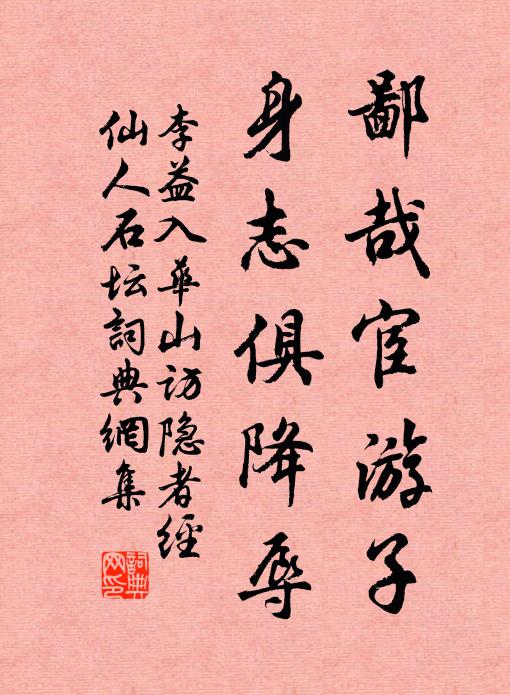 鄙哉宦游子
身志俱降辱
李益入華山访隐者經
仙人石坛詞典網集
詞典
网印